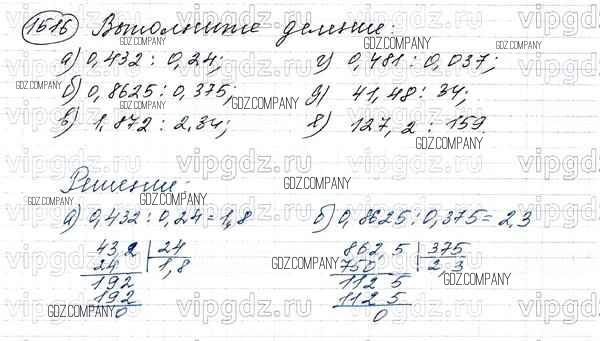 1516 Выполните деление:
а) 0,432 : 0,24; г) 0,481 : 0,037;
б) 0,8625 : 0,375; д) 41,48 : 34;
в) 1,872 : 2,34; е) 127,2 : 159.
Решение:
а) 0,432 : 0,24 = 1,8 б) 0,8625 : 0,375 = 2,3
43,2 24 862 5 375
24 1,8 750 2,3
192 112 5
192 112 5
0 0
vipgdz.ru
GDZ.COMPANY